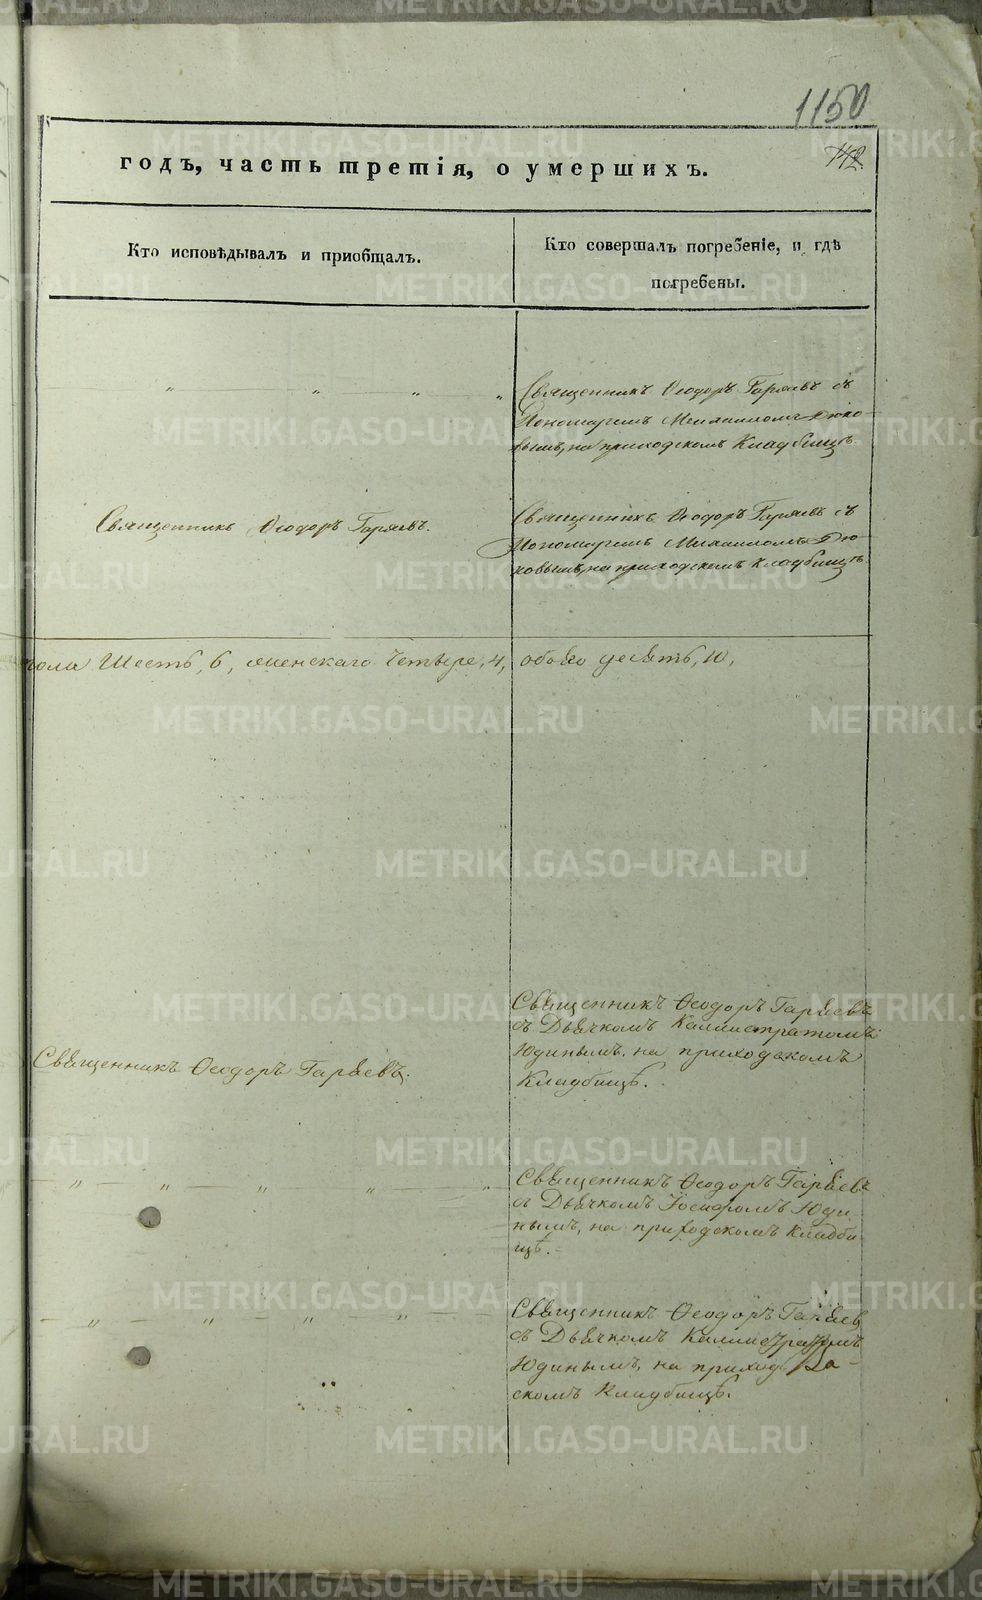 1150
годъ, часть третія, о умершихъ.
142
Кто исповѣдывалъ и приобщалъ.
Кто совершалъ погребеніе, и гдѣ
погребены.
Священникъ Ѳеодоръ Гаряевъ съ
Пономаремъ Михаиломъ Дюко-
вымъ, на приходскомъ Кладбищѣ.
Священникъ Ѳеодоръ Гаряевъ.
Священникъ Ѳеодоръ Гаряевъ съ
Пономаремъ Михаиломъ Дю-
ковымъ, на приходскомъ кладбищѣ.
пола Шесть, 6, женскаго Четыре, 4, обоего десять, 10,
Священникъ Ѳеодоръ Гаряевъ.
Священникъ Ѳеодоръ Гаряевъ
съ Дьячкомъ Каллистратомъ
Юдинымъ. на приходскомъ
Кладбищѣ.
Священникъ Ѳеодоръ Гаряевъ
съ Дьячкомъ Іосифомъ Юди-
нымъ, на приходскомъ Кладби-
щѣ.
Священникъ Ѳеодоръ Гаряев
съ Дьячкомъ Каллистратомъ
Юдинымъ, на приход
скомъ Кладбищѣ.
METRIKI.GASO-URAL.RU